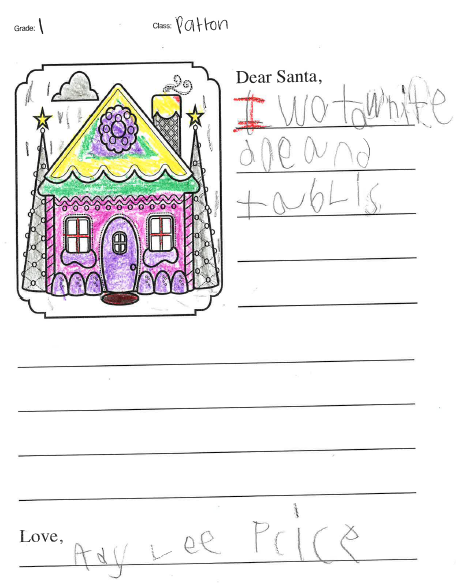 Grade: 1 Class: Patton
Dear Santa,
I wot a white
doe and
tablis
Love, Ady Lee Price